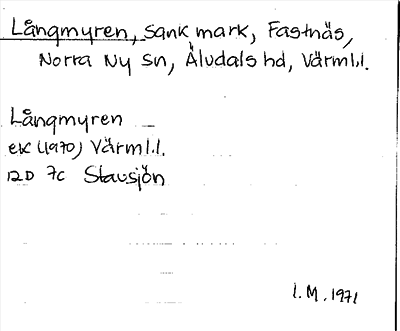 Långmyren, sank mark, Fastnäs,
Norra Ny sn, Älvdals hd, Värml.l.
Långmyren
ek (1970) Värml.l.
12D 7c Stavsjön
I.M. 1971